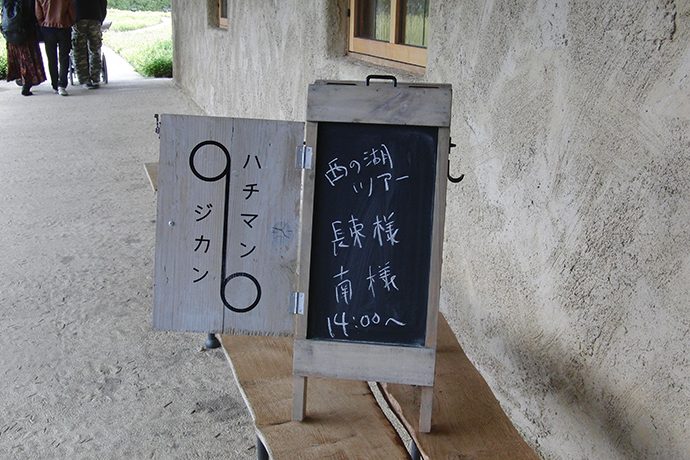 ハチマン
ジカン
西の湖
ツアー
長束様
南様
14:00〜